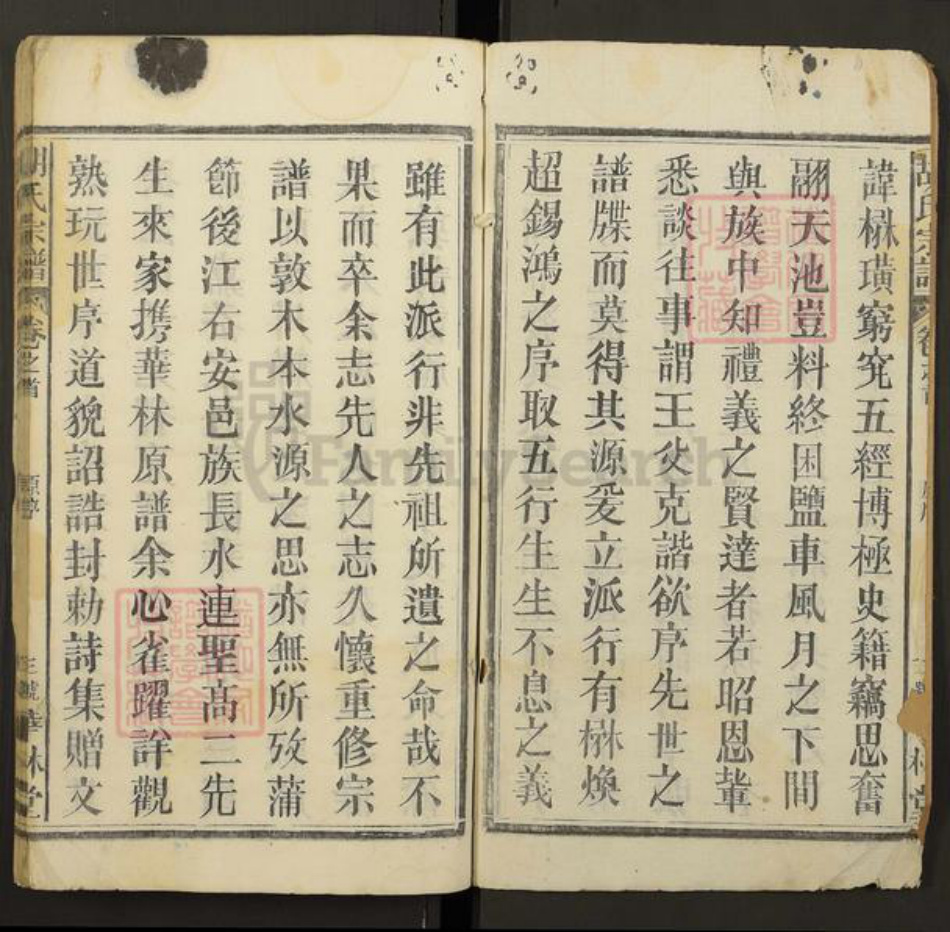 諱楙璜窮究五經博極史籍竊思奮
翮天池豈料終困鹽車風月之下間
與族中知禮義之賢達者若昭恩軰
悉談往事謂王父克諧欲序先世之
譜牒而莫得其源爰立派行有楙煥
超錫鴻之序取五行生生不息之義
雖有此派行非先祖所遺之命哉不
果而卒余志先人之志久懷重修宗
譜以敦木本水源之思亦無所攷蒲
節後江右安邑族長水連聖高三先
生來家携華林原譜余心雀躍詳觀
熟玩世序道貌詔誥封勅詩集贈文
胡氏宗譜
卷之首
華林堂
FamilySearch